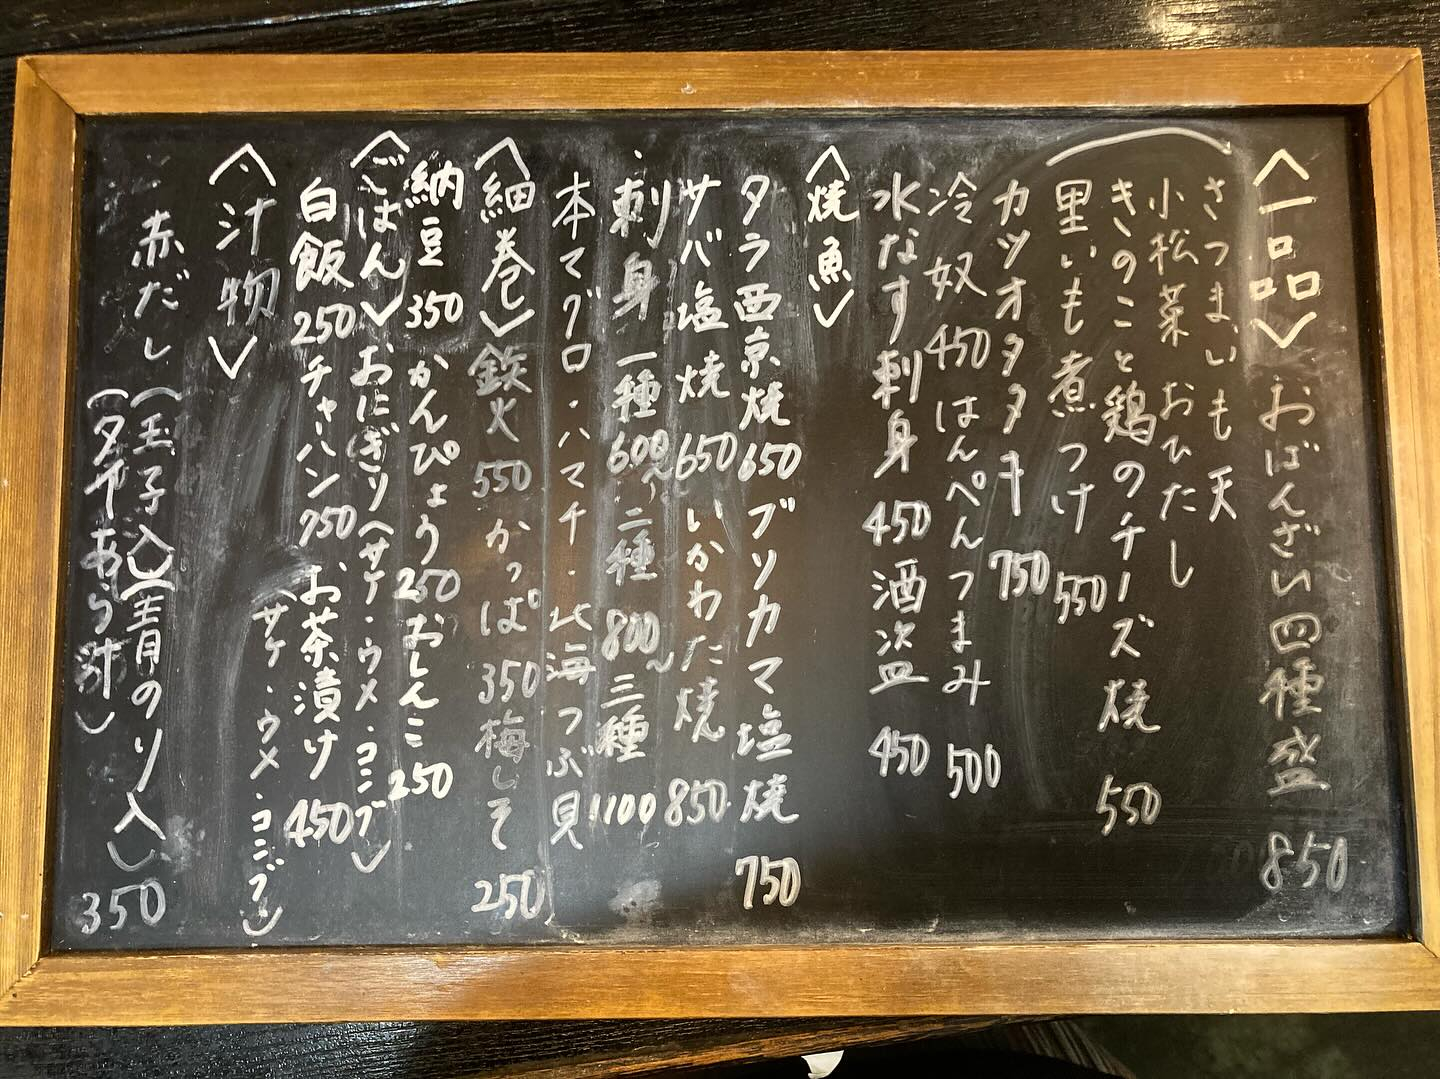 〈一品〉おばんざい四種盛 850
さつまいも天
小松菜 おひたし
きのこと鶏のチーズ焼 550
里いも煮つけ 550
カツオタタキ 750
冷奴 450 はんぺんつまみ 500
水なす刺身 450 酒盗 450
〈焼魚〉
タラ西京焼 650 ブリカマ塩焼 750
サバ塩焼 650 いかわた焼 850
刺身 一種 600〜 二種 800〜 三種 1100
本マグロ・ハマチ・北海つぶ貝
〈細巻〉鉄火 550 かっぱ 350 梅しそ 250
納豆 350 かんぴょう 250 おしんこ 250
〈ごはん〉おにぎり(サケ・ウメ・コンブ)
白飯 250 チャーハン 750 お茶漬け 450
(サケ・ウメ・コンブ)
〈汁物〉
赤だし(玉子入)(青のり入) 350
(タイあら汁)